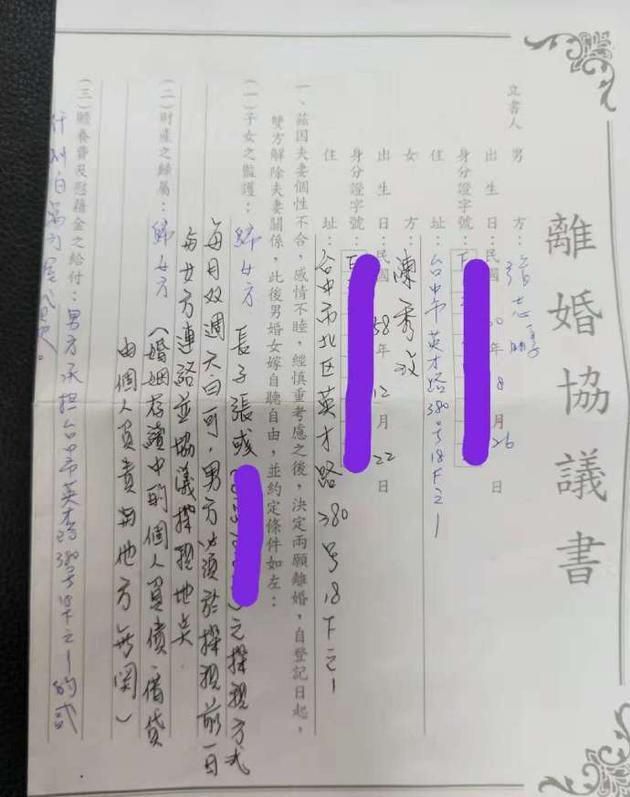 離婚協議書
立書人 男 方：張志
出 生 日：民國 年 8 月 26 日
身分證字號：F
住 址：台中市英才路380号18F之1
女 方：陳秀玟
出 生 日：民國 58 年 12 月 22 日
身分證字號：
住 址：台中市北区英才路380号18F之1
一、茲因夫妻個性不合，感情不睦，經慎重考慮之後，決定兩願離婚，自登記日起，
雙方解除夫妻關係，此後男婚女嫁自聽自由，並約定條件如左：
(一)子女之監護：歸女方 長子張彧( )之探視方式
每月双週天曰可，男方必須於探視前一日
与女方連絡並協議探視地点
(二)財產之歸屬：歸女方 (婚姻存續中的個人負債、借貸
由個人負責與他方無関)
(三)贍養費及慰藉金之給付：男方承担台中市英才路380号18F之1的貳
什捌佰萬 貸款。